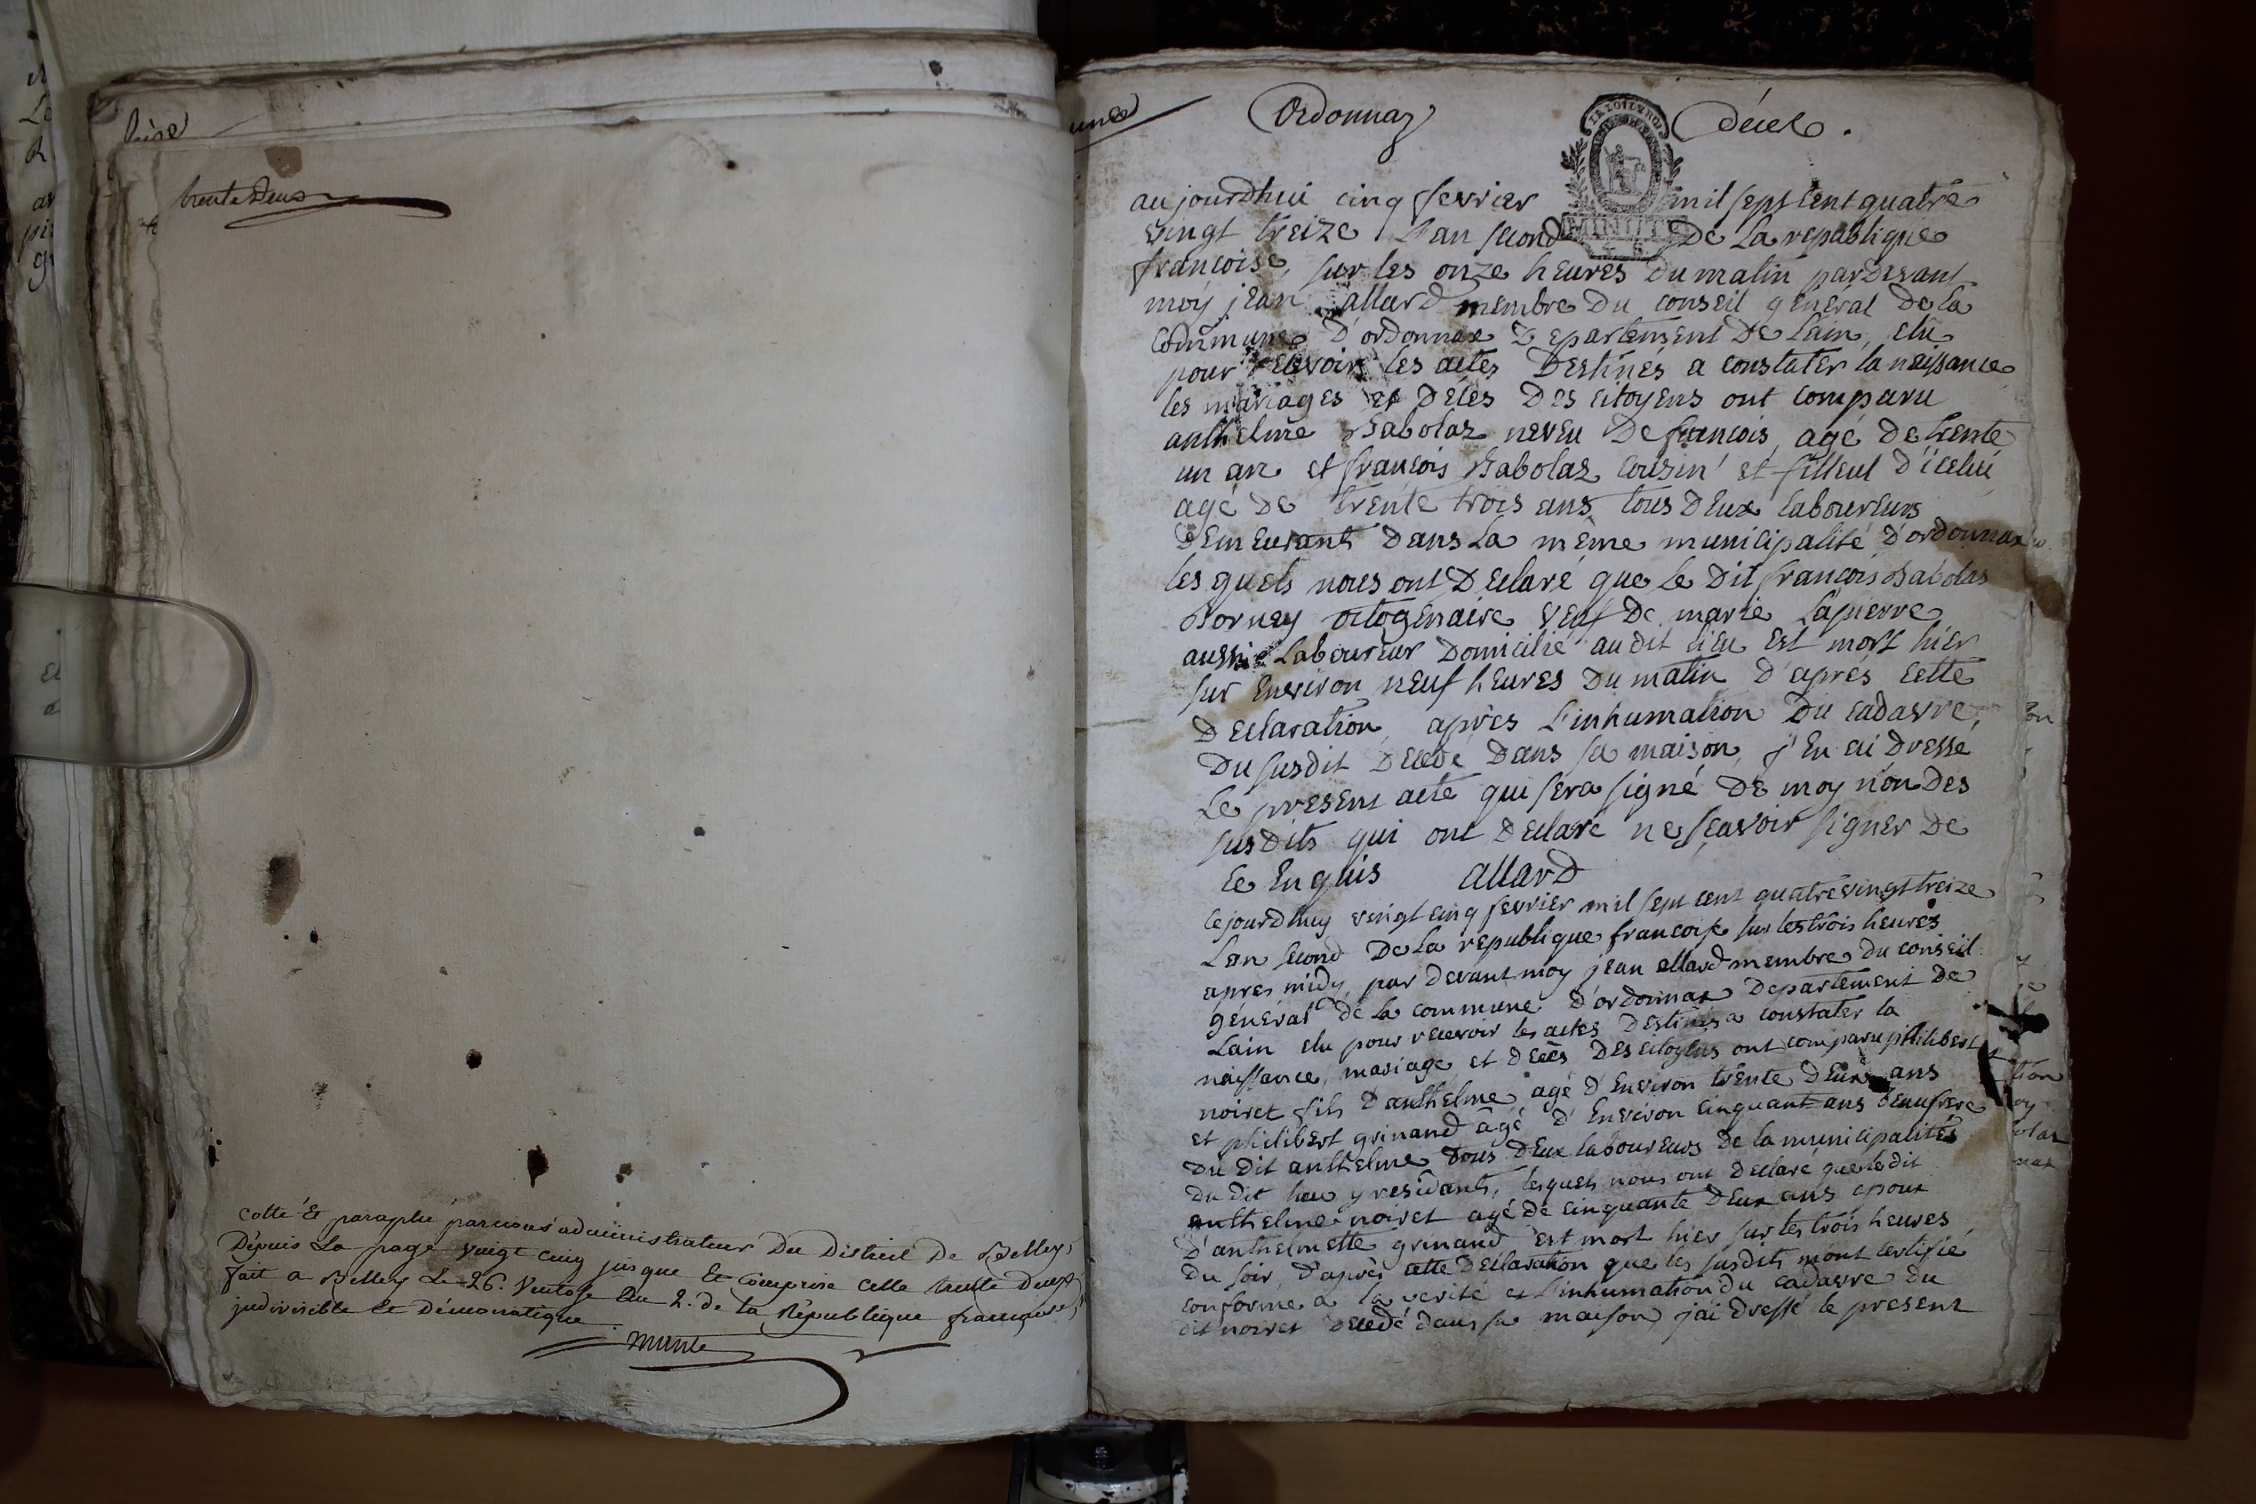 trente deux
cotté et paraphé par nous administrateur Du District De Belley,
Depuis La page vingt cinq jusque Et Comprise Celle trente deux
fait a Belley Le 26. Ventose L'an 2. de la République française,
indivisible et Démocratique.
Ordonnaz
décès.
aujourdhui cinq fevrier mil sept cent quatre
vingt treize L'an second De La republique
francoise, sur les onze heures Du matin pardevant
moy jean allard membre Du conseil general De la
Commune D'ordonnax Departement De Lain, elu
pour recevoir les actes Destinés a constater la naissance
les mariages et Décès Des citoyens ont comparu
anthelme Babolaz neveu De francois agé De trente
un an et francois Babolaz cousin et filleul d'icelui
agé De trente trois ans tous Deux laboureurs
Demeurant Dans La même municipalité D'ordonnax
les quels nous ont Declaré que Le Dit francois Babolas
Borney octogenaire veuf De marie Lapierre
aussi Laboureur Domicilié au dit lieu est mort hier
sur Environ neuf heures Du matin D'aprés cette
Declaration, après L'inhumation Du cadavre,
Du susdit Decedé Dans sa maison, j'En ai Dressé
Le present acte qui sera signé De moy non Des
susdits qui ont Declaré ne sçavoir signer De
Ce Enquis allard
Cejourdhuy vingt cinq fevrier mil sept cent quatre vingt treize
Lan second De La republique francoise sur les trois heures
apres midy, par Devant moy jean allard membre Du conseil
général De la commune D'ordonnax Departement De
Lain elu pour recevoir les actes Destinés a constater la
naissance, mariage et Décès Des citoyens ont comparu philibert
noiret fils D'anthelme agé D'Environ trente Deux ans
et philibert grinand âgé D'Environ Cinquant ans beaufrere
Du Dit anthelme tous Deux laboureurs De la municipalités
Du Dit lieu y residants, lesquels nous ont Declaré que le dit
anthelme noiret agé de Cinquante Deux ans epoux
D'anthelmette grinand est mort hier sur les trois heures
Du soir, D'aprés cette Déclaration que les susdits m'ont certifié
conforme a la verité et L'inhumation Du cadavre Du
dit noiret Decedé dans sa maison j'ai Dressé le present